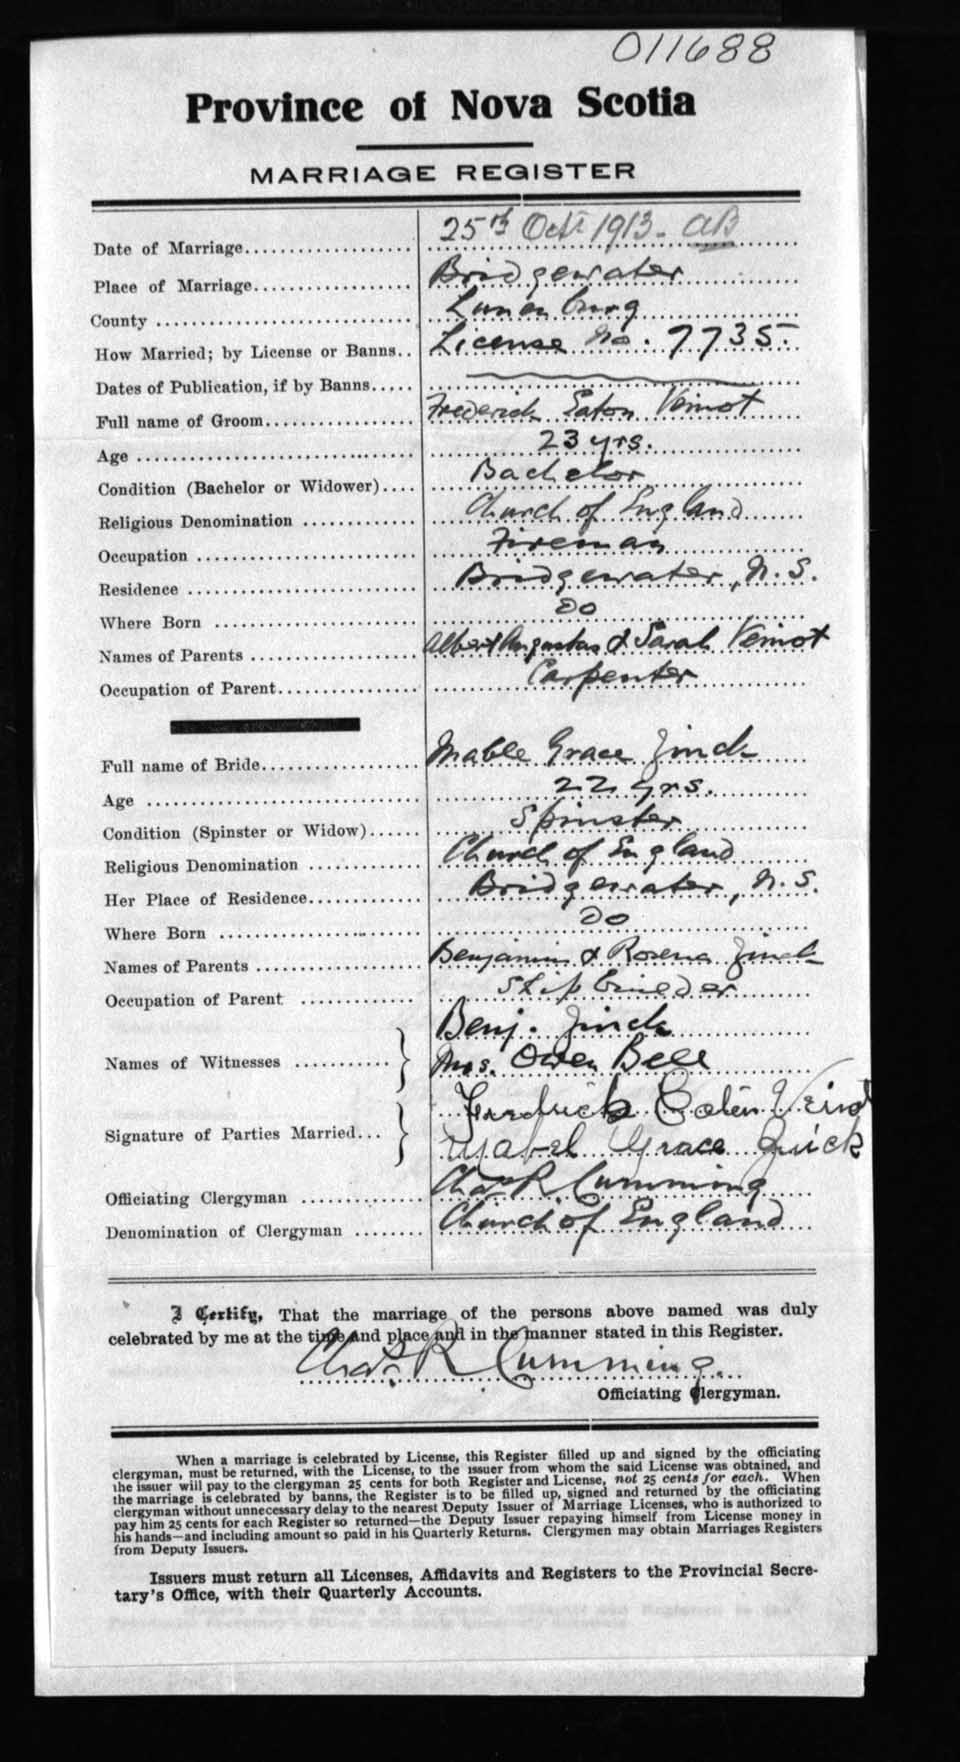 011688
Province of Nova Scotia
MARRIAGE REGISTER
Date of Marriage 25th Oct 1913. AB
Place of Marriage Bridgewater
County Lunenburg
How Married; by License or Banns License No. 7735.
Dates of Publication, if by Banns
Full name of Groom Frederick Eaton Veinot
Age 23 yrs.
Condition (Bachelor or Widower) Bachelor
Religious Denomination Church of England
Occupation Fireman
Residence Bridgewater, N.S.
Where Born Do
Names of Parents Albert Augustus & Sarah Veinot
Occupation of Parent Carpenter
Full name of Bride Mable Grace Zinck
Age 22 yrs.
Condition (Spinster or Widow) Spinster
Religious Denomination Church of England
Her Place of Residence Bridgewater, N.S.
Where Born Do
Names of Parents Benjamin & Rosena Zinck
Occupation of Parent Shipbuilder
Names of Witnesses Benj. Zinck
Mrs. Owen Bell
Signature of Parties Married Fredrick Veinot
Mabel Grace Zinck
Officiating Clergyman Chas R. Cumming
Denomination of Clergyman Church of England
I Certify, That the marriage of the persons above named was duly
celebrated by me at the time and place and in the manner stated in this Register.
Chas. R Cumming.
Officiating Clergyman.
When a marriage is celebrated by License, this Register filled up and signed by the officiating
clergyman, must be returned, with the License, to the issuer from whom the said License was obtained, and
the issuer will pay to the clergyman 25 cents for both Register and License, not 25 cents for each. When
the marriage is celebrated by banns, the Register is to be filled up, signed and returned by the officiating
clergyman without unnecessary delay to the nearest Deputy Issuer of Marriage Licenses, who is authorized to
pay him 25 cents for each Register so returned—the Deputy Issuer repaying himself from License money in
his hands—and including amount so paid in his Quarterly Returns. Clergymen may obtain Marriages Registers
from Deputy Issuers.
Issuers must return all Licenses, Affidavits and Registers to the Provincial Secre-
tary's Office, with their Quarterly Accounts.